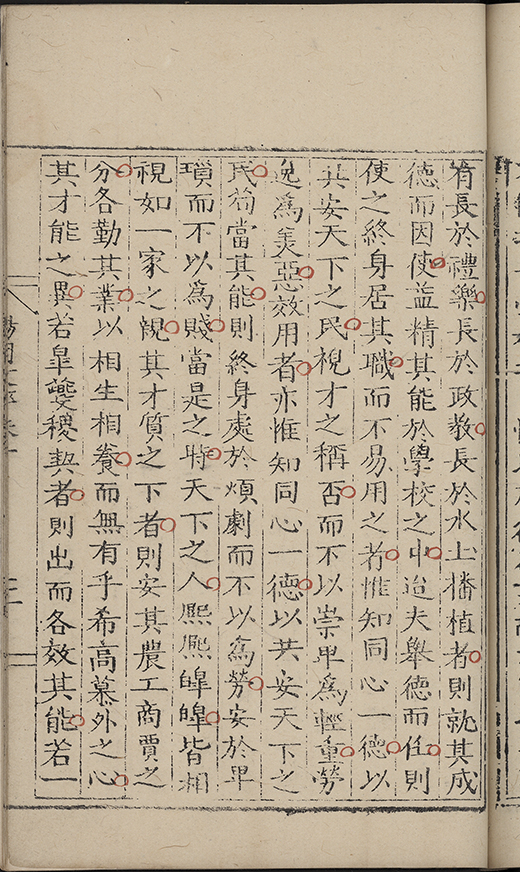 有長於禮樂長於政教長於水土播植者則就其成
德而因使益精其能於學校之中迨夫舉德而任則
使之終身居其職而不易用之者惟知同心一德以
共安天下之民視才之稱否而不以崇卑為輕重勞
逸為美惡效用者亦惟知同心一德以共安天下之
民苟當其能則終身處於煩劇而不以為勞安於卑
瑣而不以為賤當是之時天下之人熈熈皥皥皆相
視如一家之親其才質之下者則安其農工商賈之
分各勤其業以相生相養而無有乎希高慕外之心
其才能之異若臯夔稷契者則出而各效其能若一